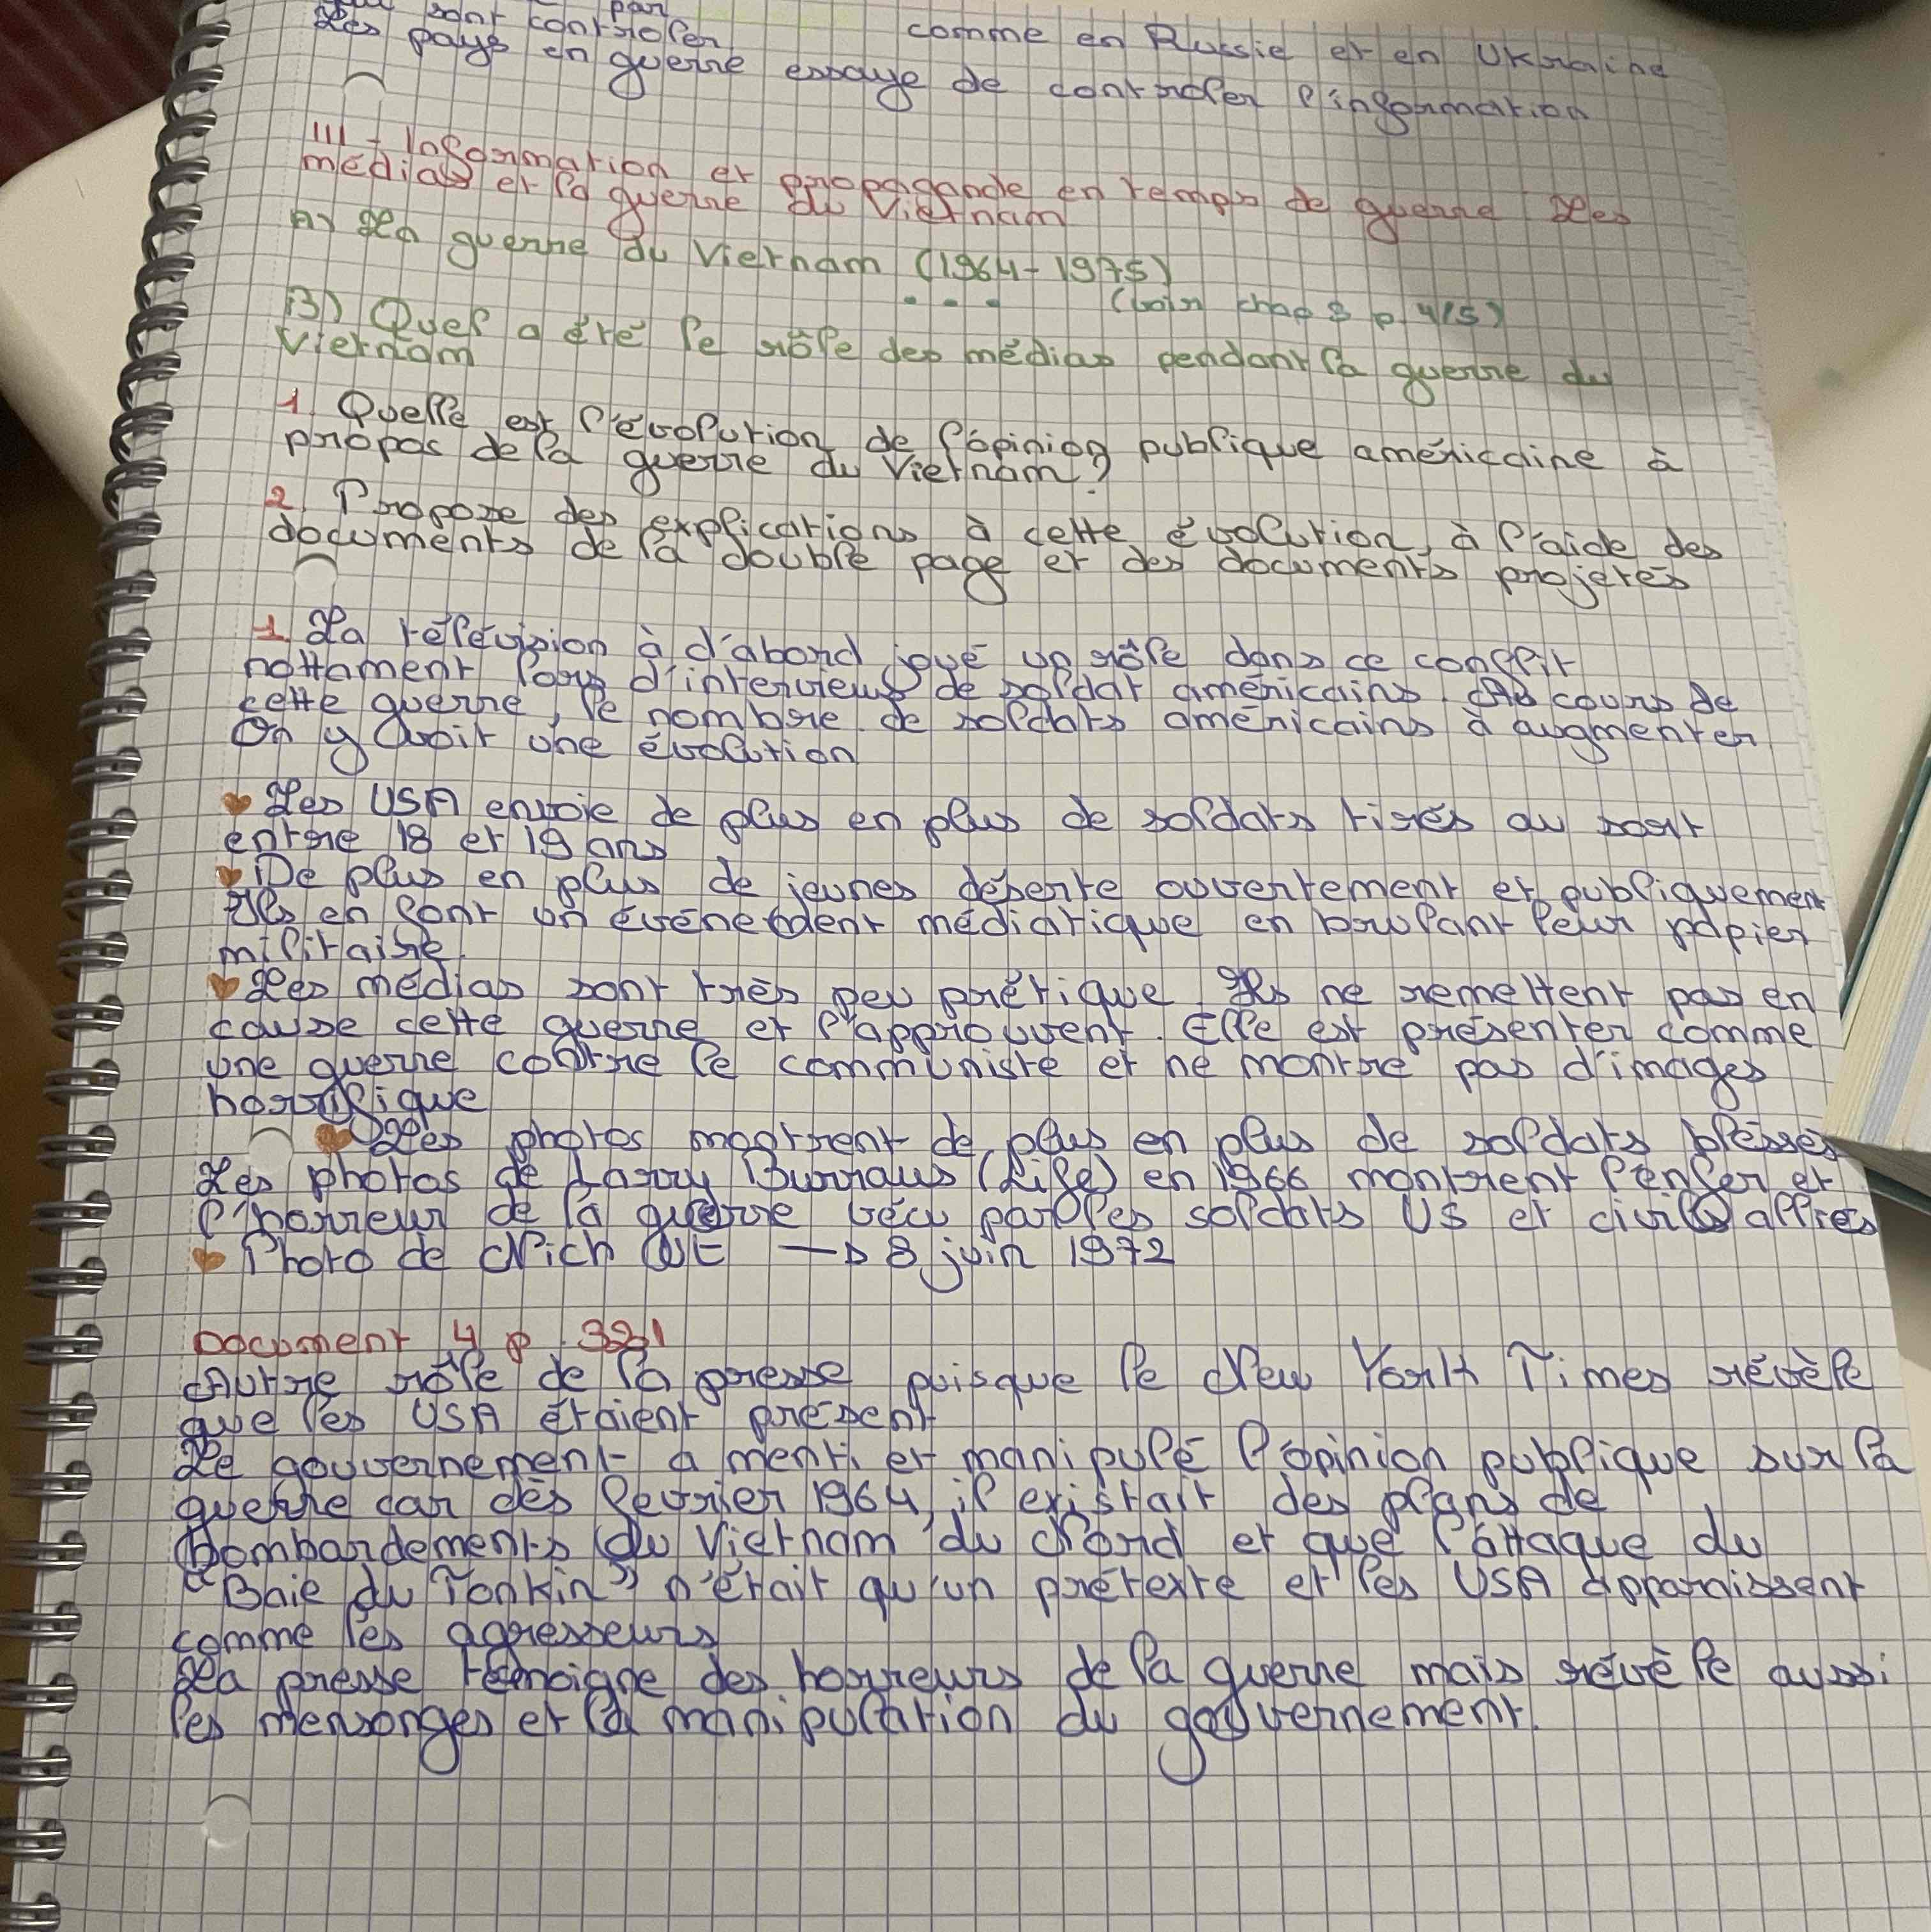 sont controler par
comme en Russie et en Ukraine
Les pays en guerre essaye de controler l'information
III - Information et propagande en temps de guerre : Les
médias et la guerre du Vietnam
A) La guerre du Vietnam (1964-1975)
... (voir chap 3 p. 4/5)
B) Quel a été le rôle des médias pendant la guerre du
Vietnam
1. Quelle est l'évolution de l'opinion publique américaine à
propos de la guerre du Vietnam ?
2. Propose des explications à cette évolution, à l'aide des
documents de la double page et des documents projetés
1. La télévision à d'abord joué un rôle dans ce conflit
nottament lors d'interviews de soldat américains. Au cours de
cette guerre, le nombre de soldats américains à augmenter
On y voit une évolution
Les USA envoie de plus en plus de soldats tirés au sort
entre 18 et 19 ans
De plus en plus de jeunes déserte ouvertement et publiquement
Ils en font un événement médiatique en brulant leur papier
militaire.
Les médias sont très peu crétique. Ils ne remettent pas en
cause cette guerre et l'approuvent. Elle est présenter comme
une guerre contre le communiste et ne montre pas d'images
horrifique
Les photos montrent de plus en plus de soldats blessés
Les photos de Larry Burraus (Life) en 1966 montrent l'enfer et
l'horreur de la guerre vécu par les soldats US et civils alliés
Photo de Nich UT → 8 juin 1972
Document 4 p. 321
Autre rôle de la presse puisque le New York Times révèle
que les USA étaient présent
Le gouvernement a menti et manipulé l'opinion publique sur la
guerre car dès fevrier 1964, il existait des plans de
bombardements du Vietnam du Nord et que l'attaque du
"Baie du Tonkin" n'était qu'un prétexte et les USA apparaissent
comme les agresseurs
La presse témoigne des horreurs de la guerre mais révèle aussi
les mensonges et la manipulation du gouvernement.